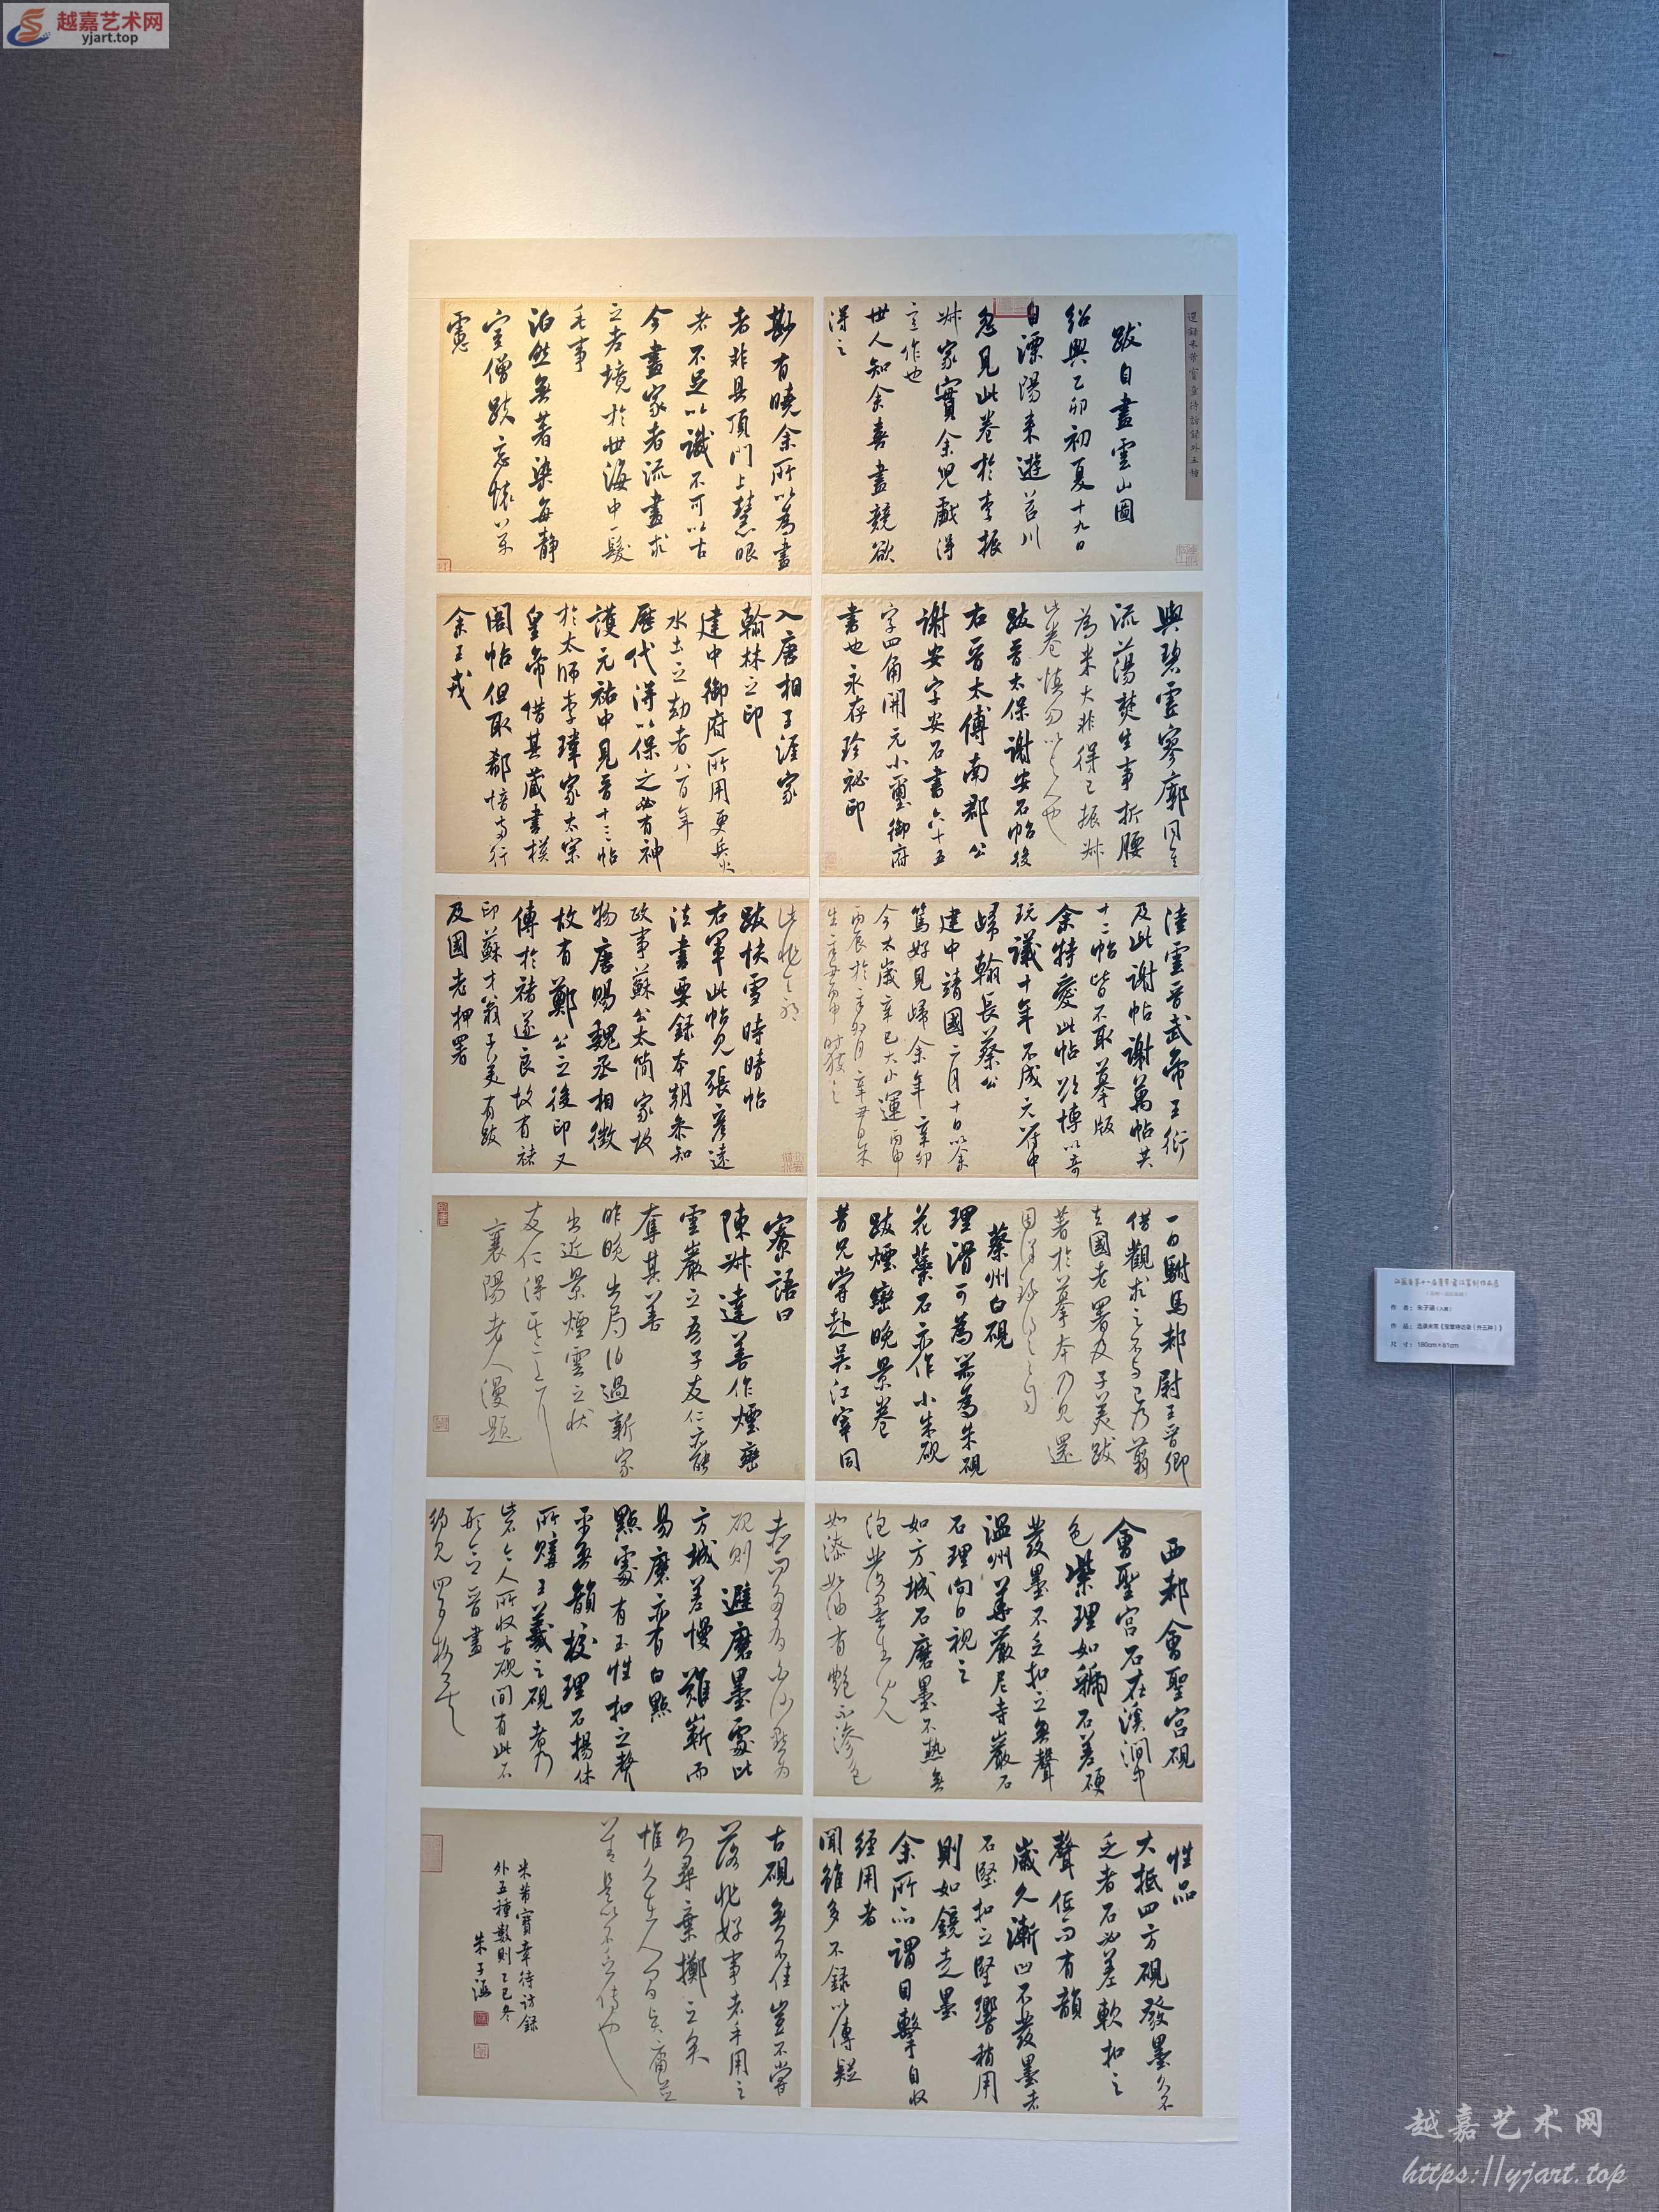 越嘉艺术网
yjart.top
選録米芾寳章待訪録外五種
跋自畫雲山圖
紹興乙卯初夏十九日
自溧陽来遊苕川
忽見此卷於李振
叔家實余兒戲得
意作也
世人知余喜畫競欲
得之
尠有曉余所以為畫
者非具頂門上慧眼
者不足以識不可以古
今畫家者流畫求
之老境於世海中一髮
毛事
泊然無著染每靜
室僧趺忘懷萬
慮
與碧雲寥廓同其
流蕩焚生事折腰
為米大非得已振叔
此卷慎勿以與人也
跋晉太保謝安石帖後
右晉太傅南郡公
謝安字安石書六十五
字四角開元小璽御府
書也永存珍祕印
入唐相王涯家
翰林之印
建中御府所用更兵火
水土之劫者八百年
歷代得以保之必有神
護元祐中見晉十三帖
於太師李瑋家太宗
皇帝借其藏書模
閣帖但取郗愔兩行
余王戎
陸雲晉武帝王衍
及此謝帖謝萬帖共
十二帖皆不取摹版
余特愛此帖欲博以奇
玩議十年不成元符中
歸翰長蔡公
建中靖國二月十日以余
篤好見歸余年辛卯
今太歲辛巳大小運丙申
丙辰於辛卯月辛丑日余
生辛丑丙申時獲之
此非天耶
跋快雪時晴帖
右軍此帖見張彥遠
法書要錄本朝參知
政事蘇公太簡家故
物唐賜魏丞相徵
故有鄭公之後印又
傳於褚遂良故有褚
印蘇才翁子美有跋
及國老押署
一日駙馬都尉王晉卿
借觀求之不與已乃翦
去國老署及子美跋
著於摹本乃見還
因得錄之
蔡州白硯
理滑可為器為朱硯
花蘂石亦作小朱硯
跋煙巒晚景卷
昔兄嘗赴吳江宰同
寮語曰
陳叔達善作煙巒
雲巖之吾子友仁亦能
奪其善
昨晚出局泊過新家
出近景煙雲之狀
友仁得
襄陽老人漫題
西都會聖宮硯
會聖宮石在溪澗中
色紫理如虢石差硬
發墨不乏扣之無聲
溫州華嚴尼寺巖石
石理向日視之
如方城石磨墨不熱無
泡發墨生光
如漆如油有艶不滲色
赤而多有白沙點為
硯則避磨墨處比
方城差慢難嶄而
易磨亦有白點
點處有玉性扣之聲
平無韻校理石揚休
所購王羲之硯者乃
紫今人所收古硯間有此石
形合晉畫
約見四五枚矣
性品
大抵四方硯發墨久不
乏者石必差軟扣之
聲低而有韻
歲久漸凹不發墨者
石堅扣之堅響稍用
則如鏡走墨
余所品謂目擊自收
經用者
聞雖多不錄以傳疑
古硯無不佳豈不嘗
落非好事者手用之
即尋棄擲之矣
惟久在人間與庸並
米芾寶章待訪錄
外五種數則乙巳冬
朱子涵
作 者：朱子涵（入展）
作 品：选录米芾《宝章待访录（外五种）》
尺 寸：180cm×81cm
越嘉艺术网
https://yjart.top